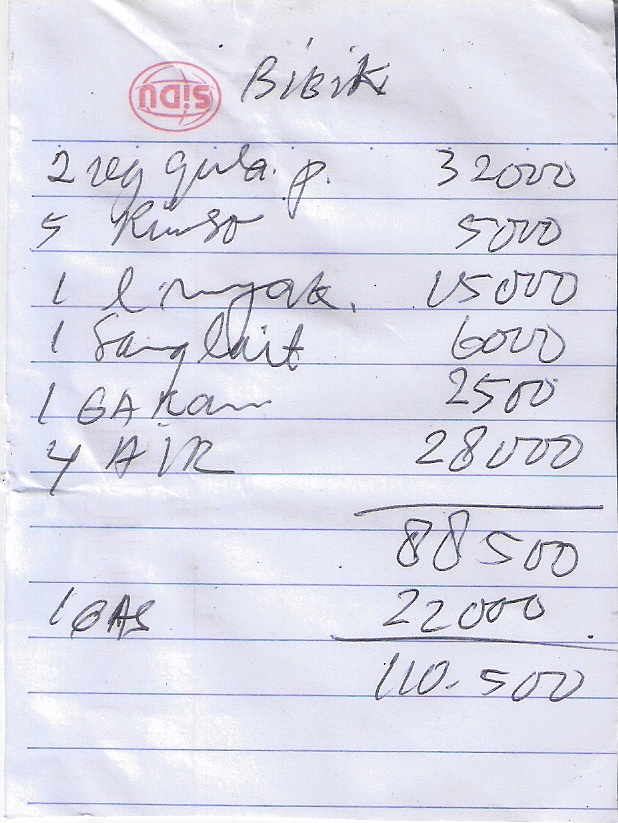 SiDU BiBiK
2 kg gula. p. 32000
5 Rinso 5000
1 l minyak. 15000
1 Sunglait 6000
1 GARam 2500
4 AIR 28000
88500
1 GAS 22000
110.500